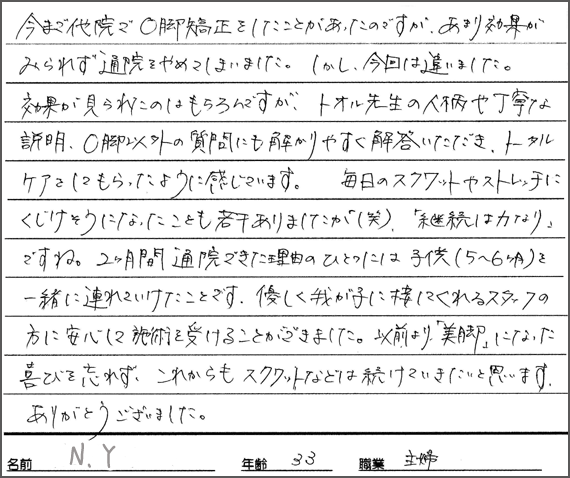 今まで他院でO脚矯正をしたことがあったのですが、あまり効果が
みられず通院をやめてしまいました。しかし、今回は違いました。
効果が見られたのはもちろんですが、トオル先生の人柄や丁寧な
説明、O脚以外の質問にも解かりやすく解答いただき、トータル
ケアをしてもらったように感じています。 毎日のスクワットやストレッチに
くじけそうになったことも若干ありましたが(笑)、「継続は力なり」
ですね。2ヶ月間通院できた理由のひとつには子供(5〜6ヶ月)を
一緒に連れていけたことです。優しく我が子に接してくれるスタッフの
方に安心して施術を受けることができました。以前より「美脚」になった
喜びを忘れず、これからもスクワットなどは続けていきたいと思います。
ありがとうございました。
名前 N.Y 年齢 33 職業 主婦